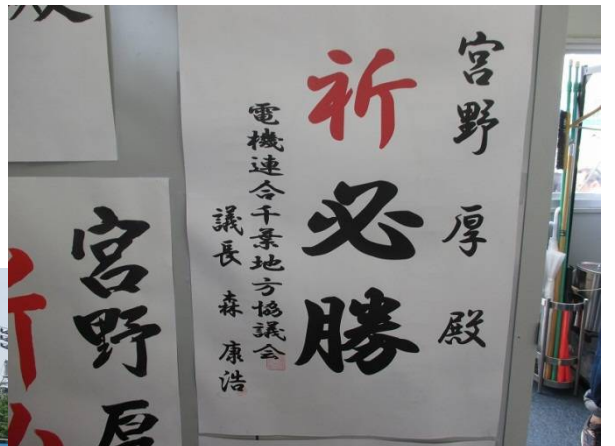 宮野 厚 殿
祈必勝
電機連合千葉地方協議会
議長 森 康浩
宮野 厚
祈必